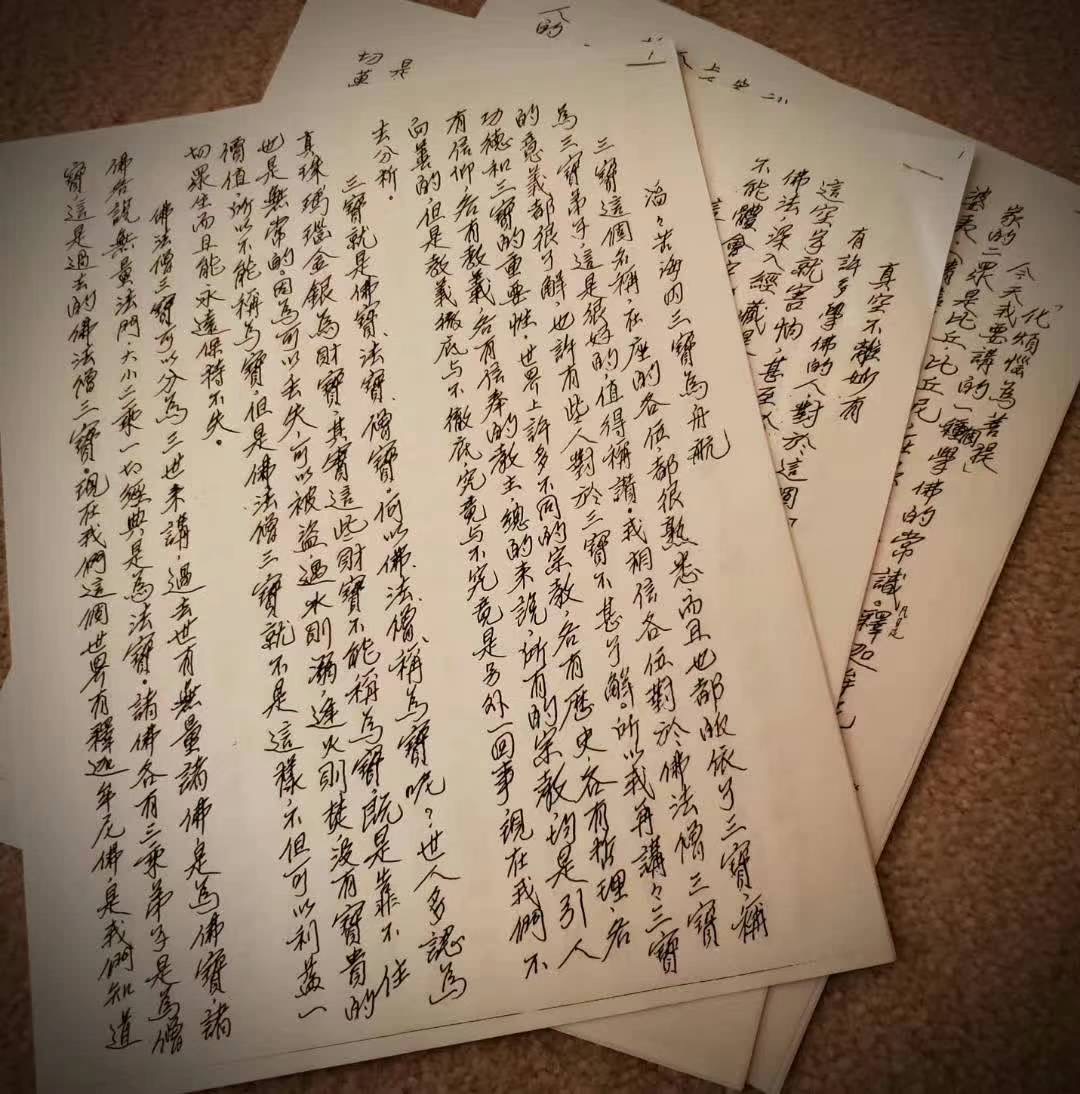 滔々苦海内三寶為舟航
三寶這個名稱、在座的各位都很熟悉而且也都皈依了三寶、稱
為三寶弟子、這是很好的值得稱讚。我相信各位對於佛法僧三寶
的意義都很了解、也許有些人對於三寶不甚了解。所以我再講々三寶
功德和三寶的重要性。世界上許多不同的宗教、各有歷史、各有哲理、各
有信仰、各有教義、各有信奉的教主、總的來說、所有的宗教均是引人
向善的、但是教義徹底與不徹底、究竟與不究竟是另外一回事、現在我們不
去分析。
三寶就是佛寶、法寶、僧寶。何以佛、法、僧、稱為寶呢？世人多認為
真珠瑪瑙金銀為財寶、其實這些財寶不能稱為寶、既是靠不住
也是無常的。因為可以丟失、可以被盜、遇水則溺、逢火則焚、沒有寶貴的
價值、所以不能稱為寶、但是佛法僧三寶就不是這樣、不但可以利益一
切眾生而且能永遠保持不失。
佛法僧三寶可以分為三世來講、過去世有無量諸佛是為佛寶、諸
佛各說無量法門、大小二乘一切經典是為法寶。諸佛各有三乘弟子是為僧
寶、這是過去的佛法僧三寶。現在我們這個世界有釋迦牟尼佛、是我們知道
是
均
真空不離妙有
有許多學佛的人、對於
這空字就害怕
佛法、深入經藏
不能體會
「化煩惱為菩提」
今天我要講的
學佛的常識。釋迦牟尼
家的二眾是比丘比丘尼
的